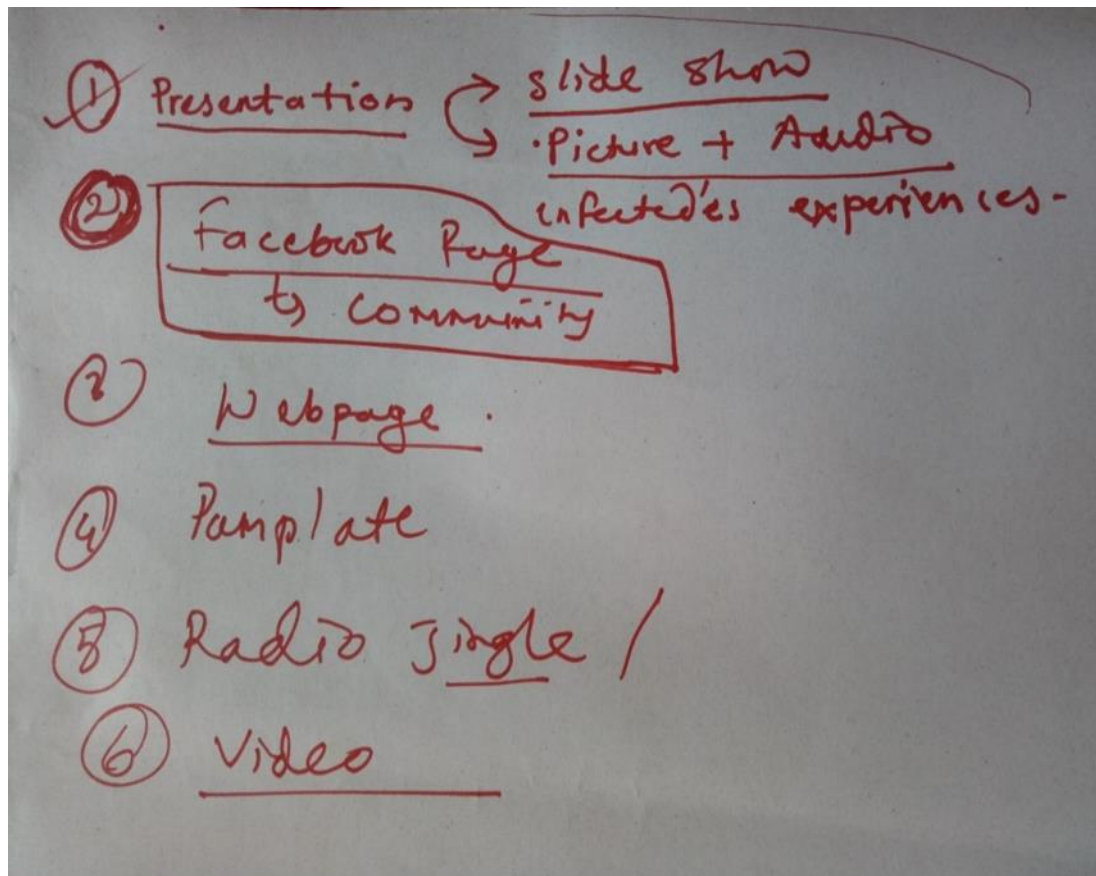 ① Presentation → slide show
→ · Picture + Audio
infected's experiences -
② Facebook Page
↳ community
③ Webpage .
④ Pamplate
⑤ Radio Jingle /
⑥ Video